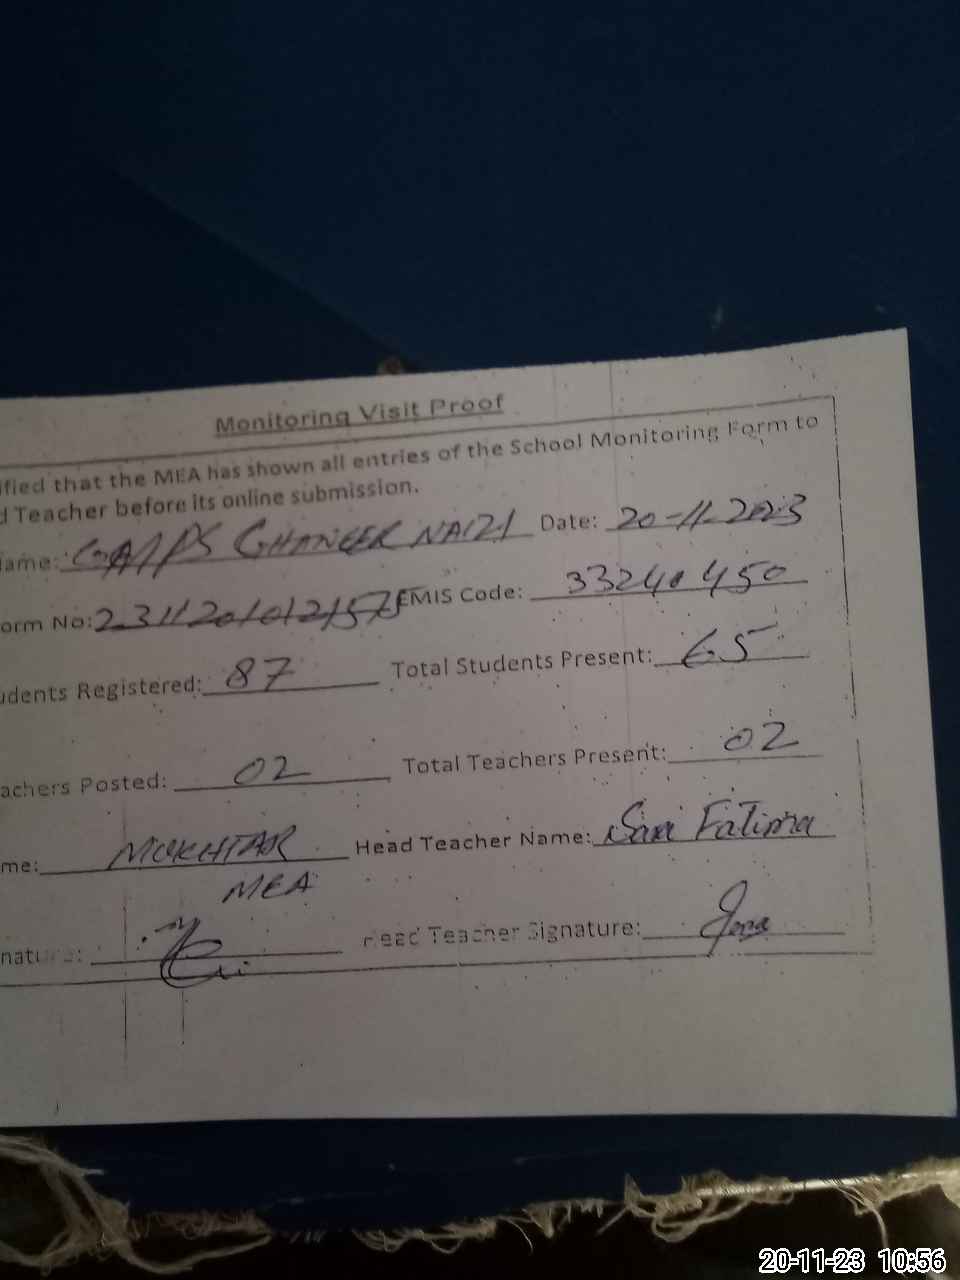 Monitoring Visit Proof
ified that the MEA has shown all entries of the School Monitoring Form to
d Teacher before its online submission.
ame: Date: 20-11-2023
orm No: EMIS Code: 33240450
udents Registered: 87 Total Students Present: 65
achers Posted: 02 Total Teachers Present: 02
me: MUKHTAR Head Teacher Name: Sara Fatima
MEA
nature: Head Teacher Signature:
20-11-23 10:56